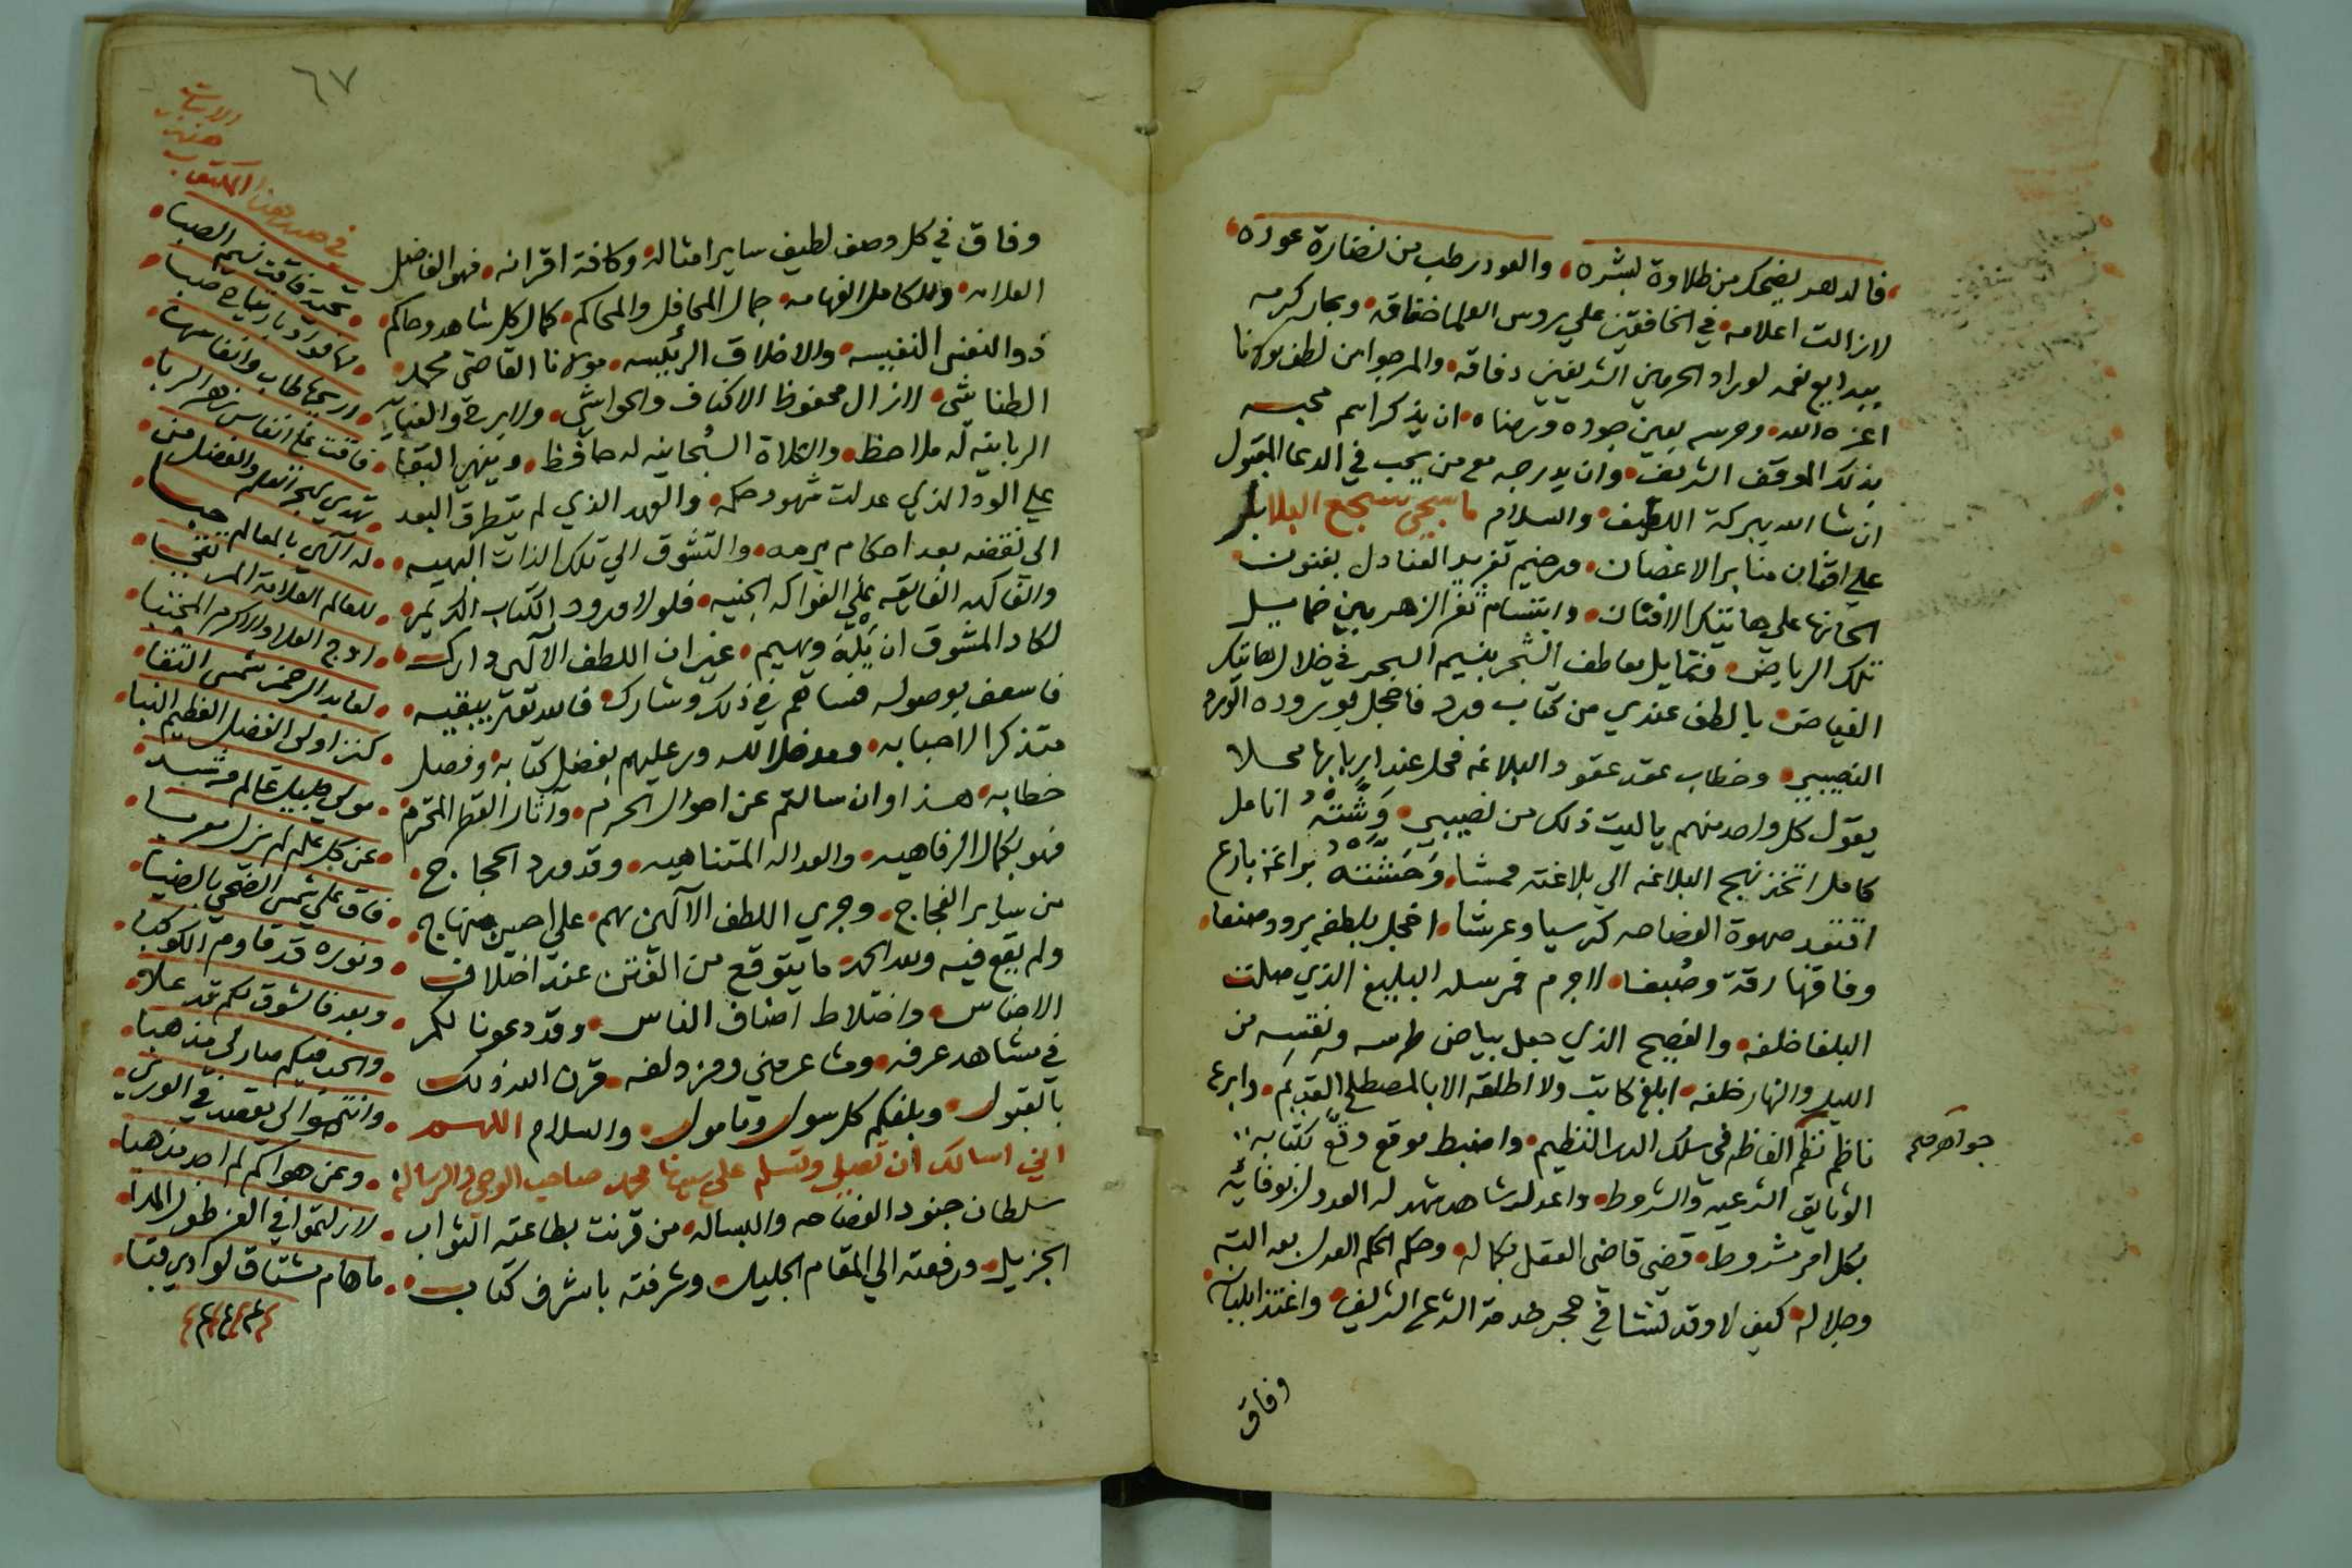 فالدهر يضحك من طلاوة بشره والعود رطب من نضارة عوده
لازالت اعلامه في الخافقين علي روس العلما خفاقه وبحار كرمه
ببدايع نعمه لوراد الحرمين الشريفين دفاقه والمرجوا من لطف مولانا
اعزه الله وحرسه بعين جوده ورضاه ان يذكر اسم محبه
بذلك الموقف الشريف وان يدرجه مع من يحب في الدعا المقبول
ان شا الله ببركة اللطيف والسلام ما سجي سجع البلابل
علي افنان منابر الاغصان ورخيم تغريد العنادل بفنون
الحانها علي هاتيك الافنان وابتسام ثغر الزهر بين خمايل
تلك الرياض وتمايل معاطف الشجر بنسيم السحر في خلال هاتيك
الغياض بالطف عندي من كتاب ورد فاخجل بوروده الورد
النصيبي وخطاب عقد عقود البلاغه فحل عند اربابها محلا
يقول كل واحد منهم ياليت ذلك من نصيبي وشته انامل
كامل اتخذ نهج البلاغه الي بلاغته ممشا وحشته براعة بارع
اقتعد صهوة الفصاحه كرسيا وعرشا اخجل بلطفه برود صنعا
وفاقها رقة وصنعا لاجرم فمرسله البليغ الذي صلت
البلغا خلفه والفصيح الذي جعل بياض طرسه ونقسه من
الليل والنهار خلفه ابلغ كاتب ولا اطلقه الا بالمصطلح القديم وابرع
ناظم نظم الفاظه في سلك الدر النظيم واضبط موقع وقع بكتابه
جواهر صح
الوثايق الشرعيه والشروط واعدل شاهد شهد له العدول بوفائه
بكل امر مشروط قضي قاضي العقل بكماله وحكم الحكم العدل بعدالته
وجلاله كيف لا وقد نشا في حجر خدمة الشرع الشريف واغتذا بلبانه
وفاق
٦٧
وفاق في كل وصف لطيف ساير امثاله وكافة اقرانه فهو الفاضل
العلامه والكامل الفهامه جمال المحافل والمحاكم كمال كل شاهد وحاكم
ذو النفس النفيسه والاخلاق الرئيسه مولانا القاضي محمد
الطناشي لازال محفوظ الاكناف والحواشي ولا برحت العناية
الربانيه له ملاحظ والكلاة السبحانيه له حافظ وينهي البقا
علي الود الذي عدلت شهود حكمه والعهد الذي لم يتطرق البعد
الي نقضه بعد احكام برمه والتشوق الي تلك الذات البهيه
والفاكهه الفايقه علي الفواكه الجنيه فلولا ورود الكتاب الكريم
لكاد المشوق ان يله ويهيم غير ان اللطف الالهي دارك
فاسعف بوصوله فساهم في ذلك وشارك فالله تعالي يبقيه
متذكرا لاحبابه عليهم بفضل كتابه وفصل
خطابه هذا وان سالتم عن احوال الحرم واثار القطر المحترم
فهو بكمال الرفاهيه والعداله المتناهيه وقد ورد الحجاج
من ساير الفجاج وجري اللطف الالهي بهم علي احسن منهاج
ولم يقع فيه ولله الحمد ما يتوقع من الفتن عند اختلاف
الاجناس واختلاط اصناف الناس وقد دعونا لكم
في مشاهد عرفه ومشاعر مني ومزدلفه قرن الله ذلك
بالقبول وبلغكم كل سول ومامول والسلام اللهم
اني اسالك ان تصلي وتسلم علي سيدنا محمد صاحب الوحي والرساله
سلطان جنود الفصاحه والبساله من قرنت بطاعته الثواب
الجزيل ورفعته الي المقام الجليل وشرفته باشرف كتاب
والابيات
هذه
في صدر هذا المكتوب
تحية فاقت نسيم الصبا
وريحها طاب وانفاسها
فاقت علي انفاس زهر الربا
تهدي لبحر العلم والفضل من
للعالم العلامة المرتضي
اوج العلا والاكرم المجتبا
لعابد الرحمن شمس التقا
كنز اولي الفضل العظيم النبا
مولي جليل عالم مرشد
عن كل علم لم يزل معربا
فاق علي شمس الضحي بالضيا
ونوره قد قاوم الكوكبا
وبعد فالشوق لكم قد علا
والحب فيكم صار لي مذهبا
وانتموا لي مقصد في الوري
وعن هواكم لم اجد مذهبا
لازلتموا في العز طول المدا
ما هام مشتاق لوادي قبا